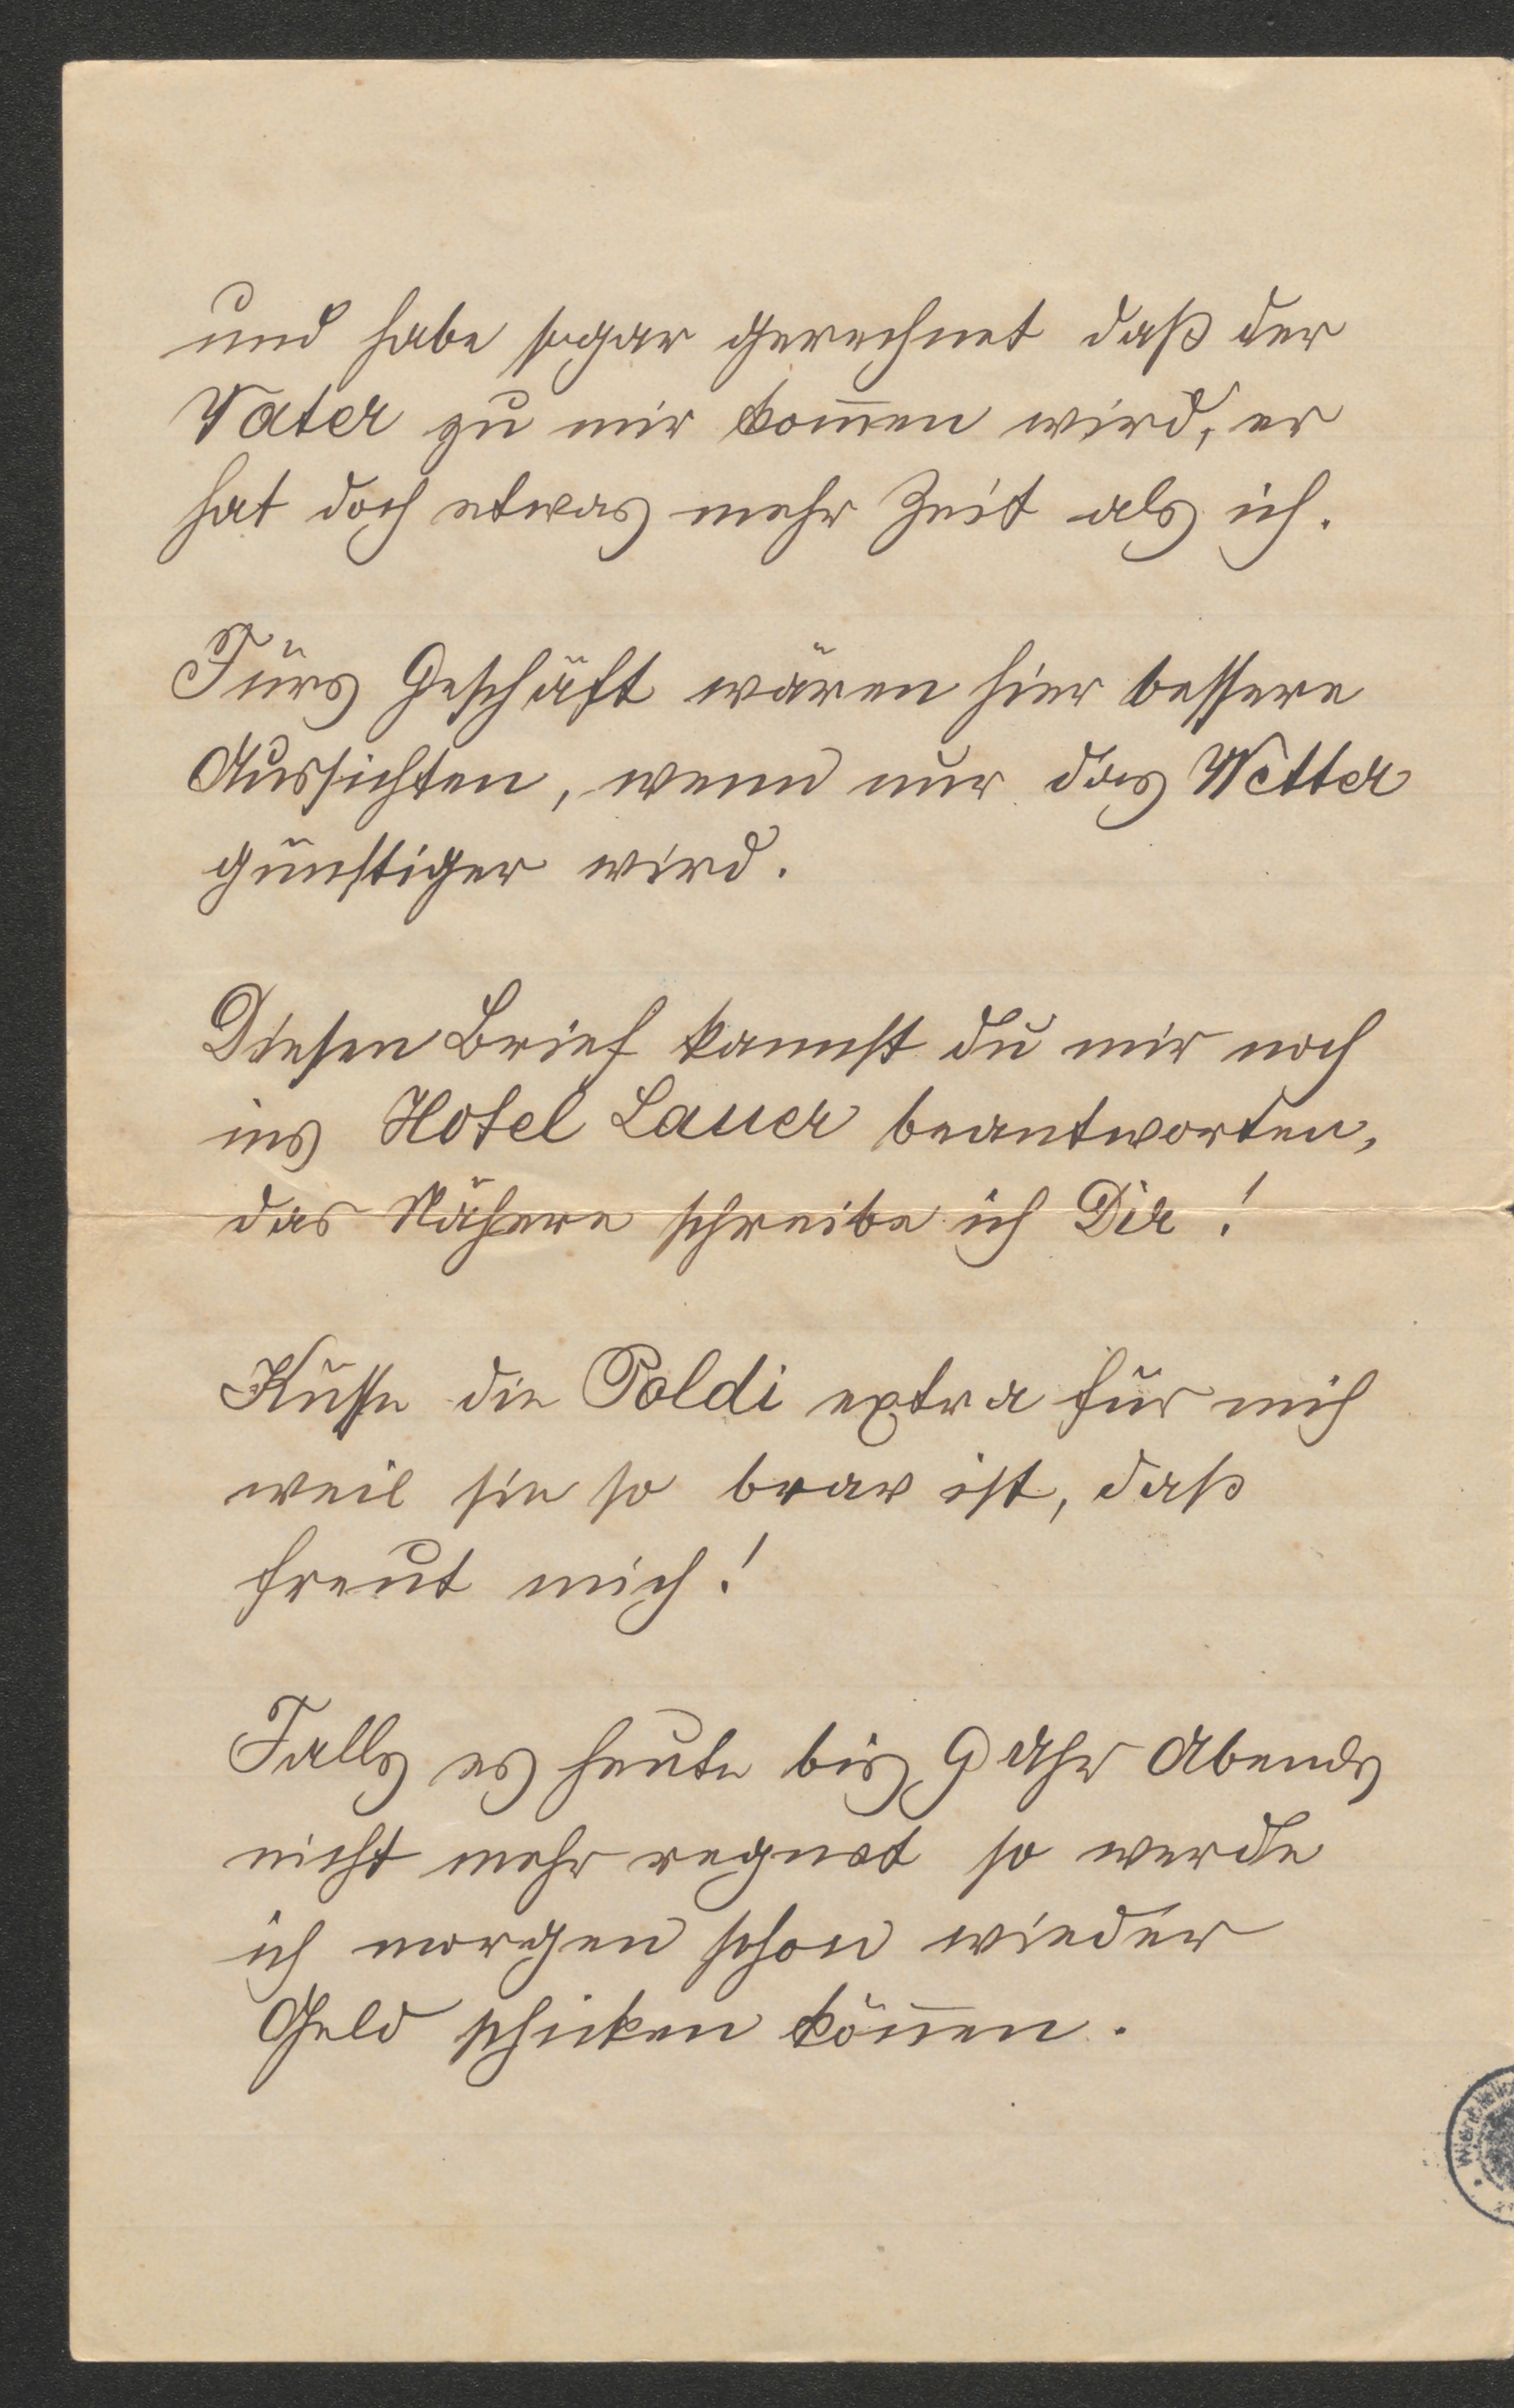 und habe sogar gerechnet daß der
Vater zu mir kom̄en wird, er
hat doch etwas mehr Zeit als ich.
Fürs Geschäft wären hier bessere
Aussichten, wenn nur das Wetter
günstiger wird.
Diesen Brief kannst du mir noch
ins Hotel Lauer beantworten,
das Nähere schreibe ich Dir!
Küsse die Poldi extra für mich
weil sie so brav ist, daß
freut mich!
Falls es heute bis 9 Uhr Abends
nicht mehr regnet so werde
ich morgen schon wieder
Geld schicken kön̄en.